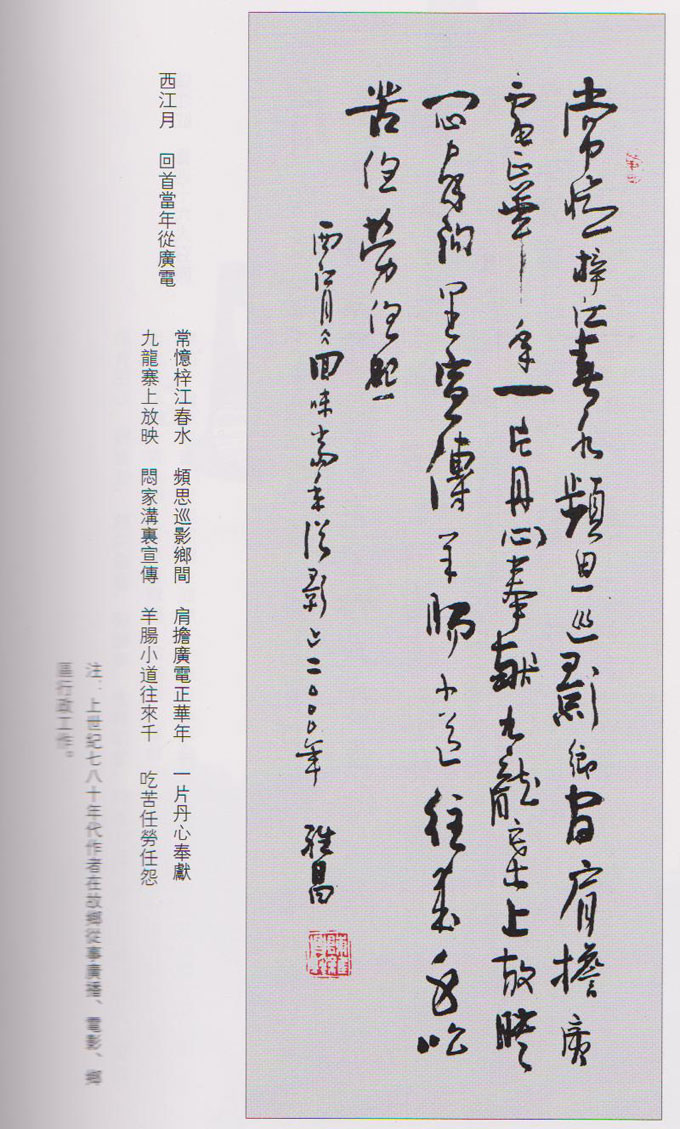 常憶梓江春水頻思巡影鄉間肩擔廣
電正華年一片丹心奉獻九龍寨上放映
悶家溝里宣傳羊腸小道往來千吃
苦任勞任怨
西江月回味當年從影占二〇〇〇年 雅昌
西江月 回首當年從廣電
常憶梓江春水 頻思巡影鄉間 肩擔廣電正華年 一片丹心奉獻
九龍寨上放映 悶家溝裏宣傳 羊腸小道往來千 吃苦任勞任怨
注：上世紀七八十年代作者在故鄉從事廣播、電影、鄉
區行政工作。